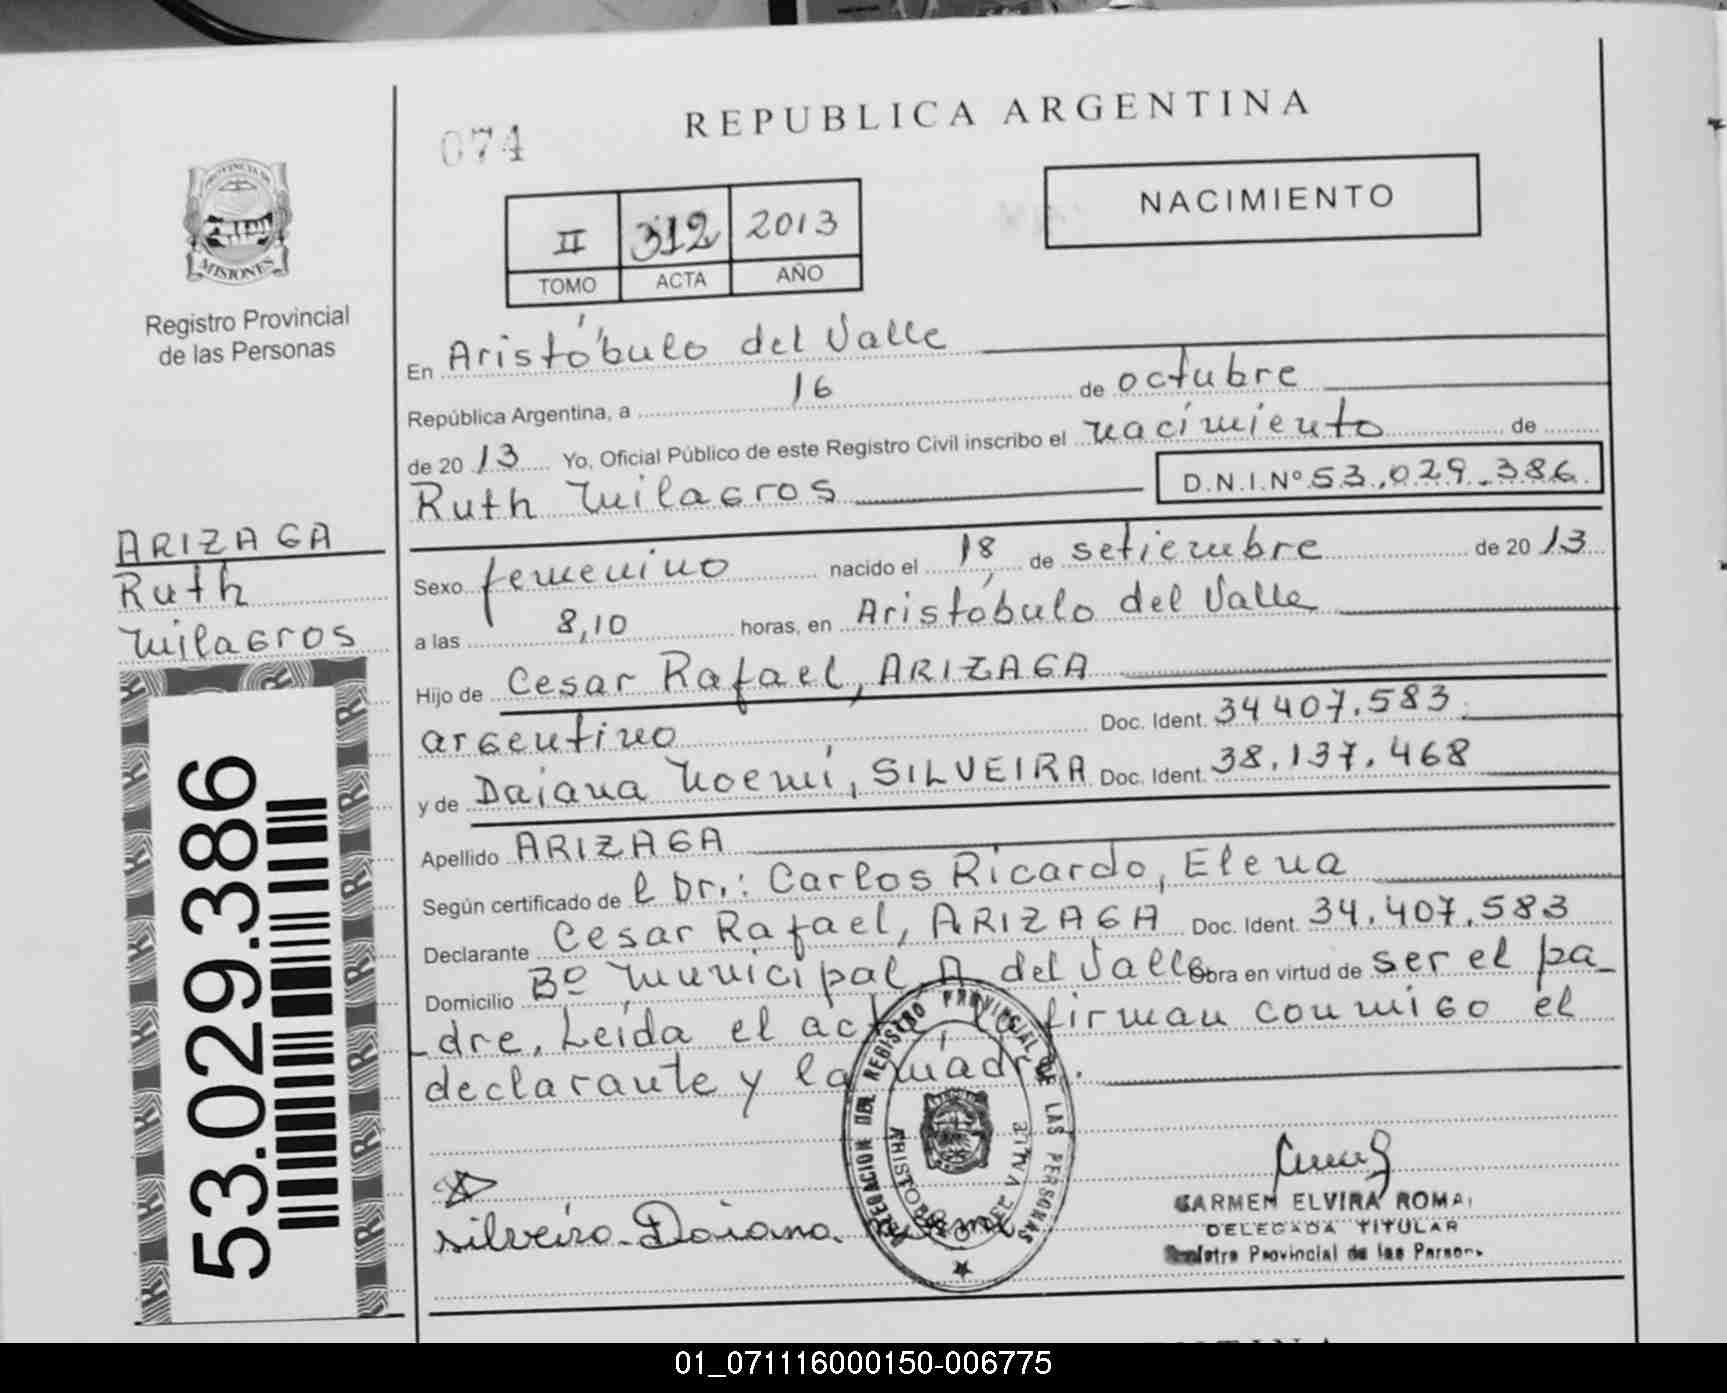 REPUBLICA ARGENTINA
074
NACIMIENTO
II 312 2013
TOMO ACTA AÑO
PROVINCIA DE
MISIONES
Registro Provincial
de las Personas
En Aristóbulo del Valle
República Argentina, a 16 de octubre
de 2013 Yo, Oficial Público de este Registro Civil inscribo el nacimiento de
Ruth Milagros D.N.I.Nº 53.029.386
ARIZAGA
Ruth
Milagros
53.029.386
Sexo femenino nacido el 18 de setiembre de 2013
a las 8,10 horas, en Aristóbulo del Valle
Hijo de Cesar Rafael, ARIZAGA
argentino Doc. Ident. 34 407.583
y de Daiana Noemí, SILVEIRA Doc. Ident. 38.137.468
Apellido ARIZAGA
Según certificado de l Dr.: Carlos Ricardo, Elena
Declarante Cesar Rafael, ARIZAGA Doc. Ident. 34.407.583
Domicilio Bº Municipal, A del Valle Obra en virtud de ser el pa-
dre, Leída el acta firman conmigo el
declarante y la madre.
DELEGACION DEL REGISTRO PROVINCIAL DE LAS PERSONAS
ARISTOBULO DEL VALLE
silveira Daiana Noemi
CARMEN ELVIRA ROMA
DELEGADA TITULAR
Registro Provincial de las Person
01_071116000150-006775